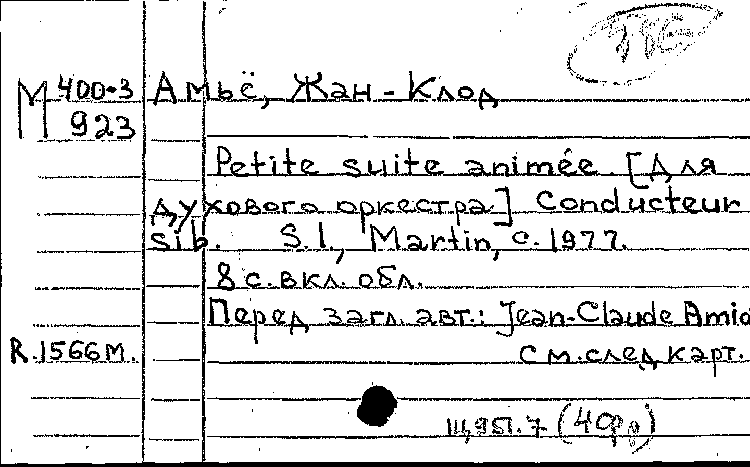 М 400-3 Амьё, Жан-Клод
923
Petite suite animée. [Для
духового оркестра] Conducteur
sib. S.l., Martin, c.1977.
8 с. вкл. обл.
Перед загл. авт.: Jean-Claude Amio
R.1566М. См. след карт.